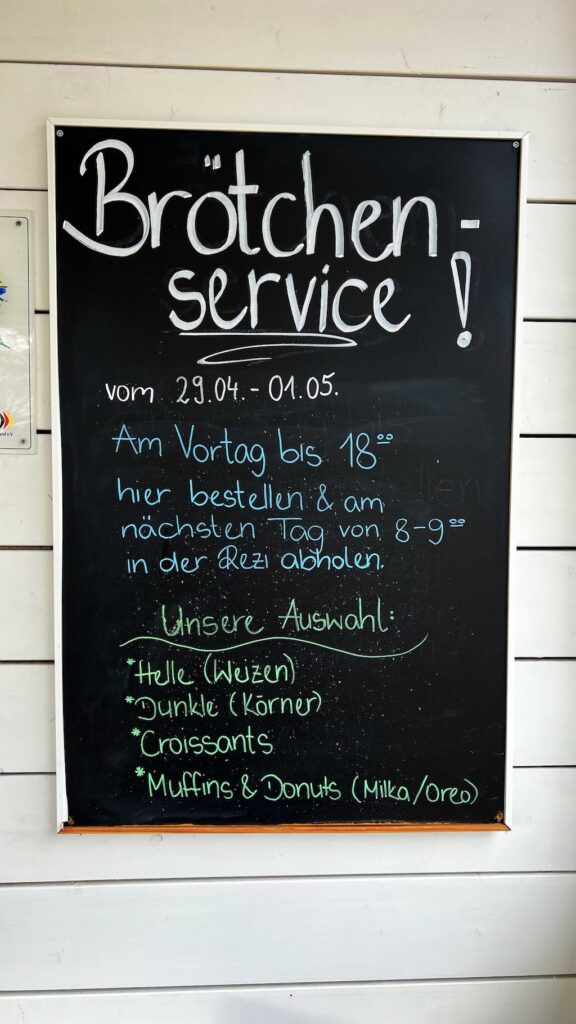 Brötchen-
service!
vom 29.04.-01.05.
Am Vortag bis 18⁰⁰
hier bestellen & am
nächsten Tag von 8-9⁰⁰
in der Rezi abholen.
Unsere Auswahl:
*Helle (Weizen)
*Dunkle (Körner)
*Croissants
*Muffins & Donuts (Milka/Oreo)